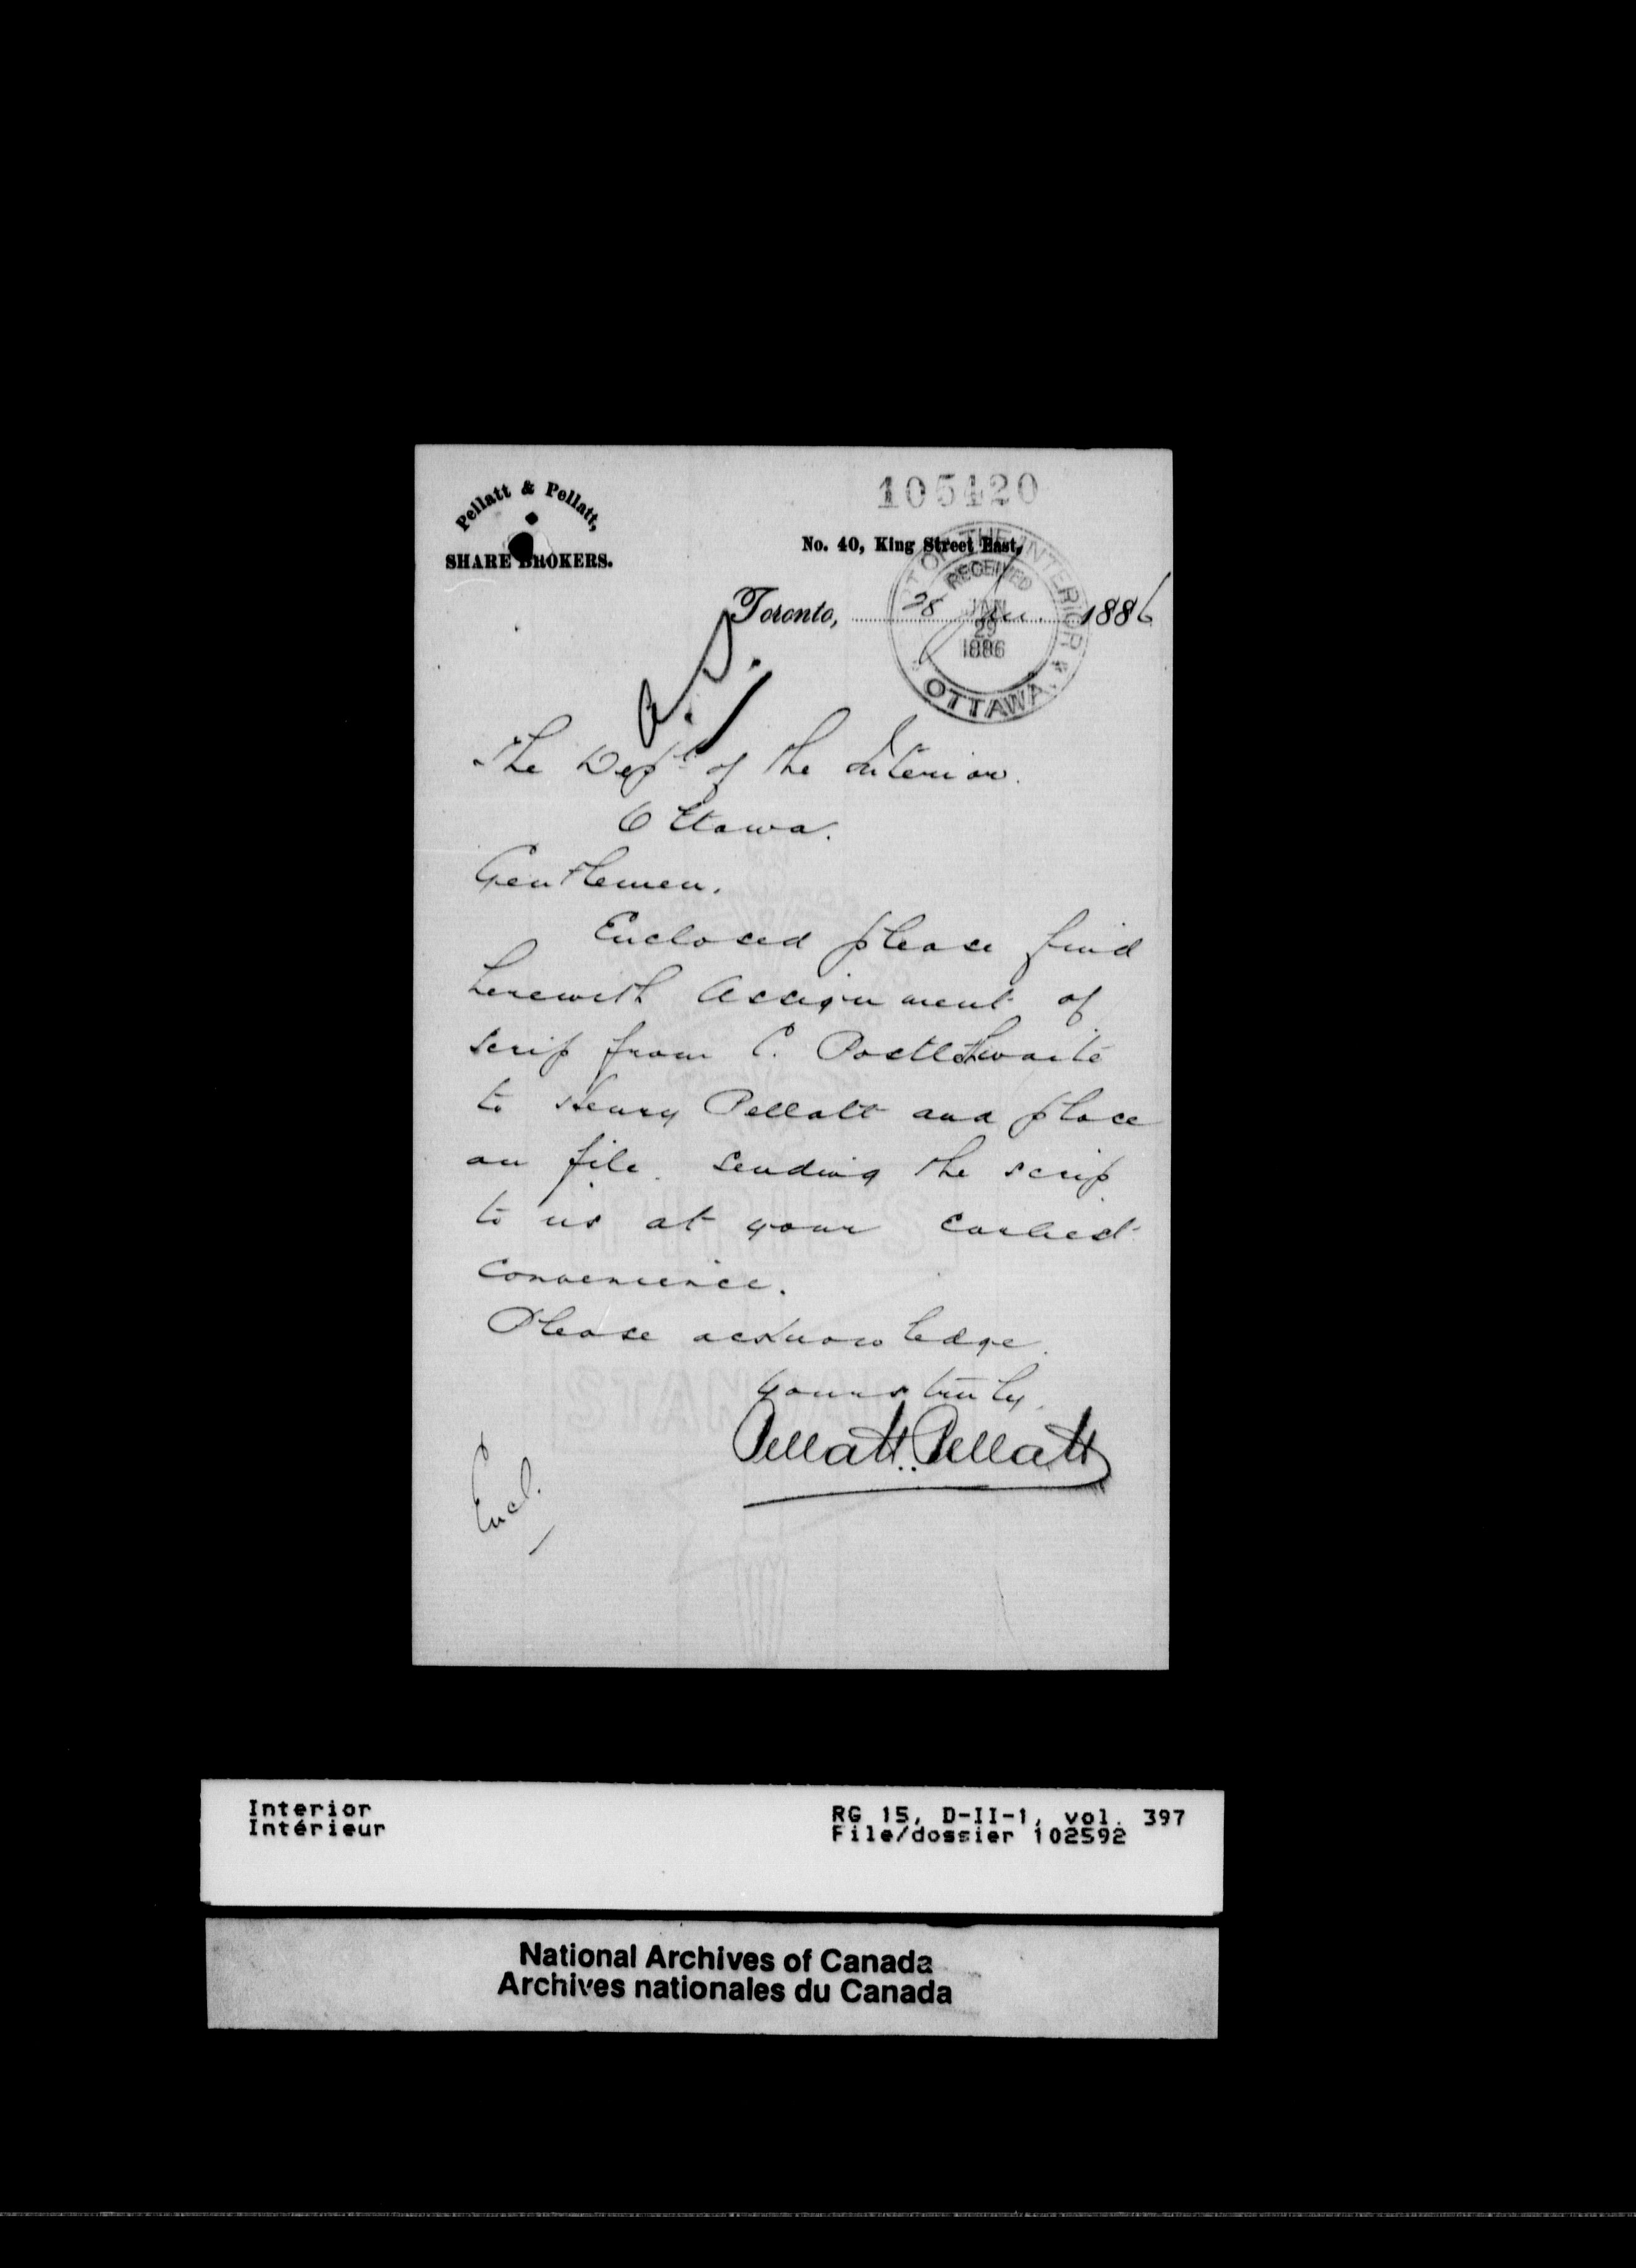 105420
Pellatt & Pellatt,
SHARE BROKERS.
No. 40, King Street East,
DEPT OF THE INTERIOR
RECEIVED
JAN
29
1886
OTTAWA
Toronto, 28 Jan. 1886
The Dept of the Interior.
Ottawa.
Gentlemen.
Enclosed please find
herewith assignment of
scrip from C. Postlethwaite
to Henry Pellatt and place
on file. sending the scrip
to us at your earliest
convenience.
Please acknowledge.
Yours truly.
Pellatt & Pellatt
Encl.
PIRIE'S
STANDARD
Interior
Intérieur
RG 15, D-II-1, vol. 397
File/dossier 102592
National Archives of Canada
Archives nationales du Canada